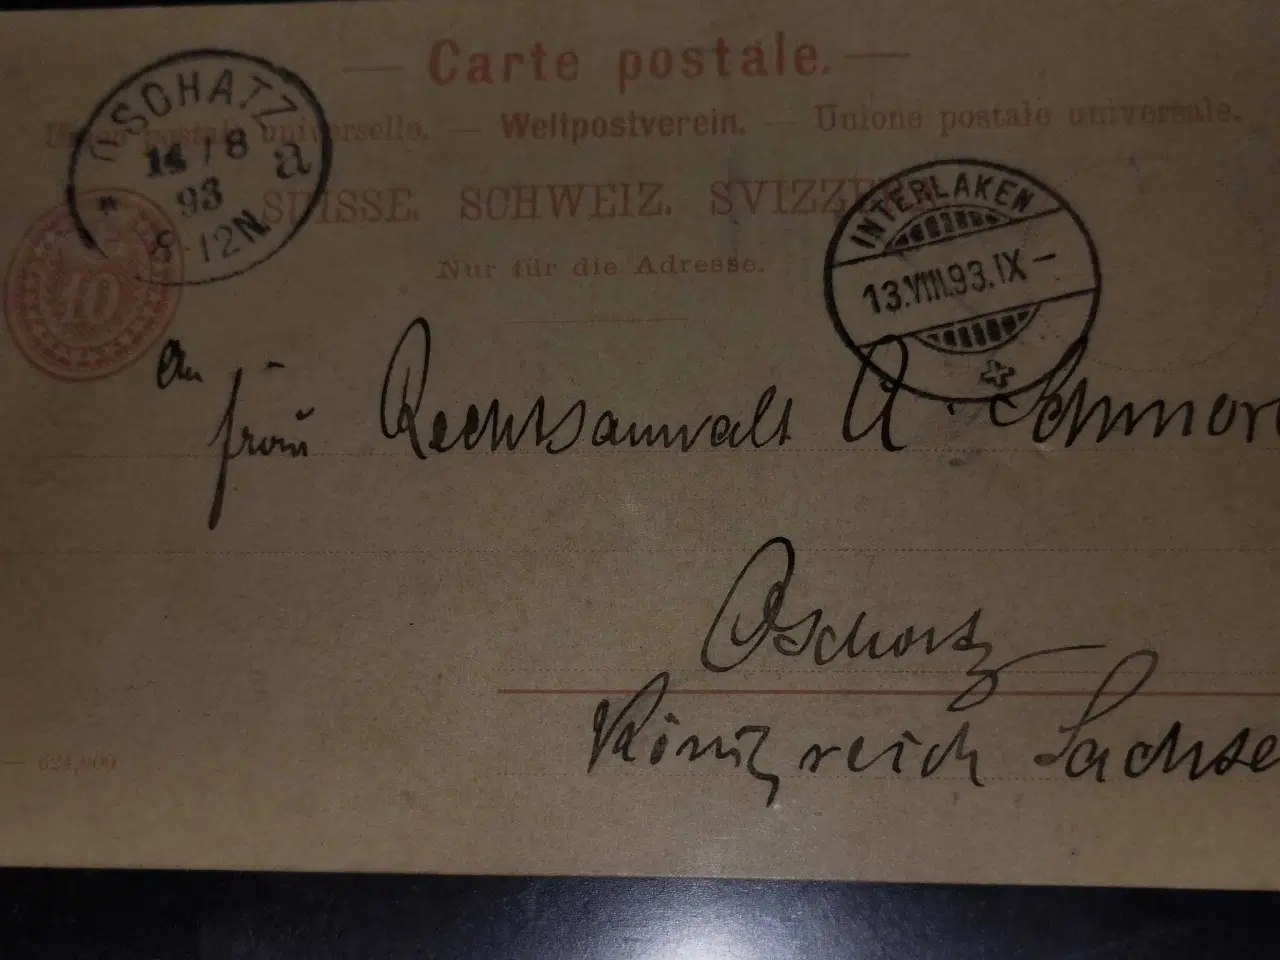 Carte postale.
Union postale universelle. — Weltpostverein. — Unione postale universale.
SUISSE. SCHWEIZ. SVIZZE
Nur für die Adresse.
OSCHATZ
14 / 8
93
8-12N.
a
INTERLAKEN
13.VIII.93.IX –
10
An
Frau Rechtsanwalt A. Schmor
Oschatz
Königreich Sachse
— 624,000